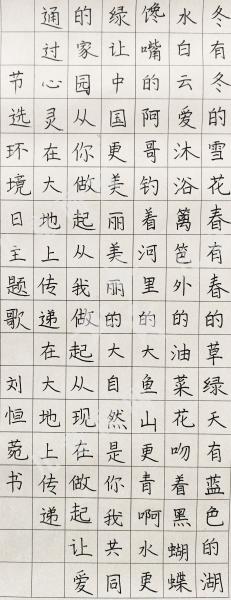 冬有冬的雪花春有春的草绿天有蓝色的湖
水白云爱沐浴篱笆外的油菜花吻着黑蝴蝶
馋嘴的阿哥钓着河里的大鱼山更青啊水更
绿让中国更美丽美丽的大自然是你我共同
的家园从你做起从我做起从现在做起让爱
通过心灵在大地上传递在大地上传递
节选环境日主题歌 刘恒菀书